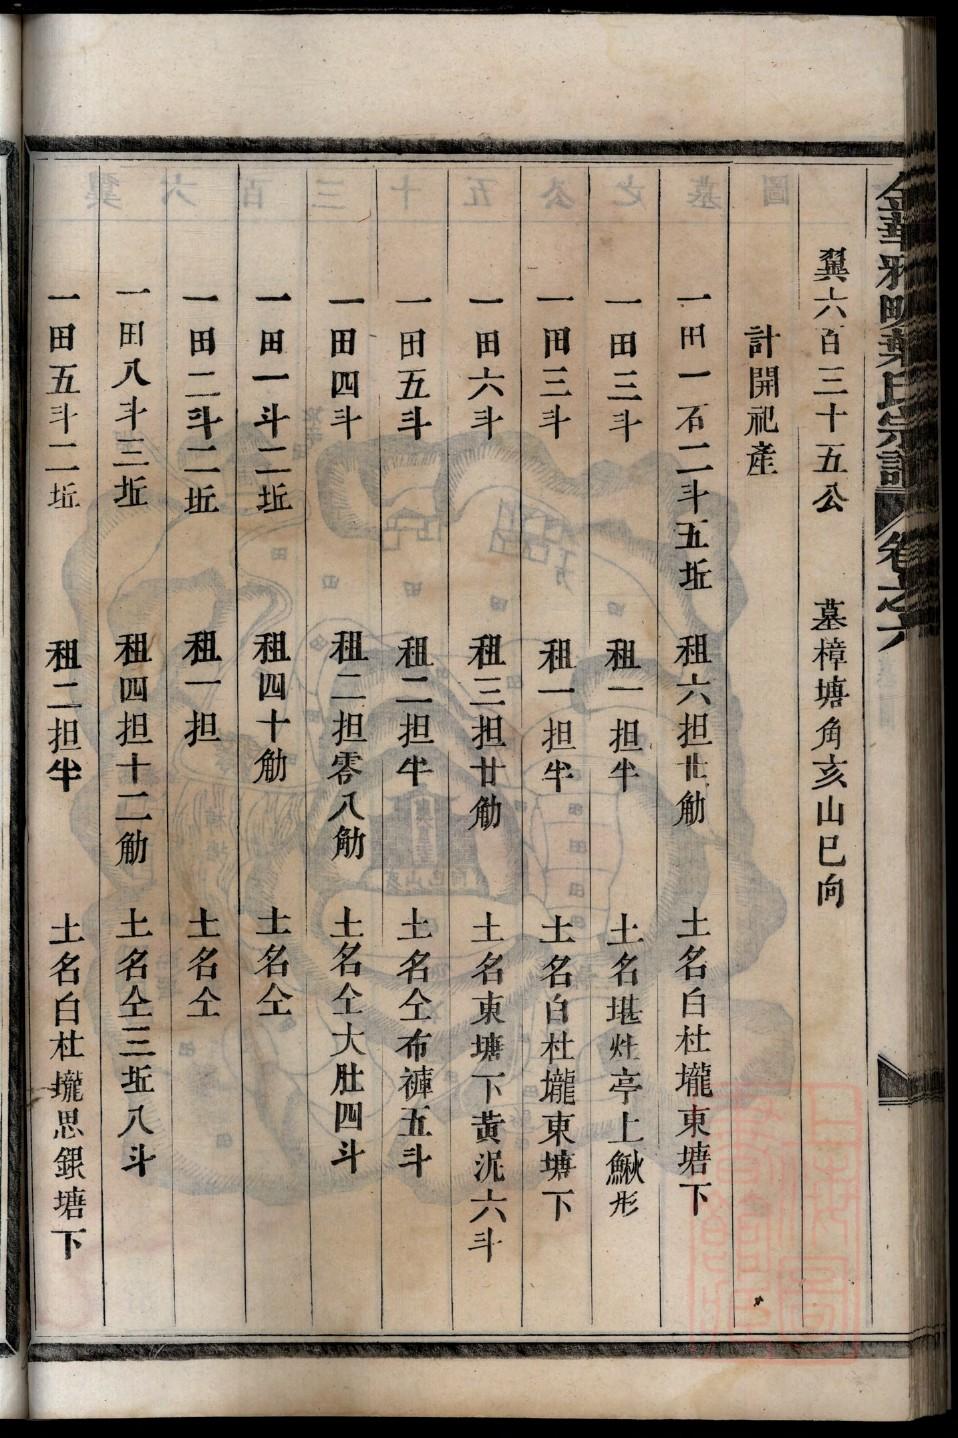 金華雅畈葉氏宗譜 卷之六
翼六百三十五公 墓樟塘角亥山巳向
計開祀產
一田一石二斗五坵 租六担廿觔 土名白杜壠東塘下
一田三斗 租一担半 土名堪灶亭上鰍形
一田三斗 租一担半 土名白杜壠東塘下
一田六斗 租三担廿觔 土名東塘下黃泥六斗
一田五斗 租二担半 土名仝布褲五斗
一田四斗 租二担零八觔 土名仝大肚四斗
一田一斗二坵 租四十觔 土名仝
一田二斗二坵 租一担 土名仝
一田八斗三坵 租四担十二觔 土名仝三坵八斗
一田五斗二坵 租二担半 土名白杜壠思銀塘下